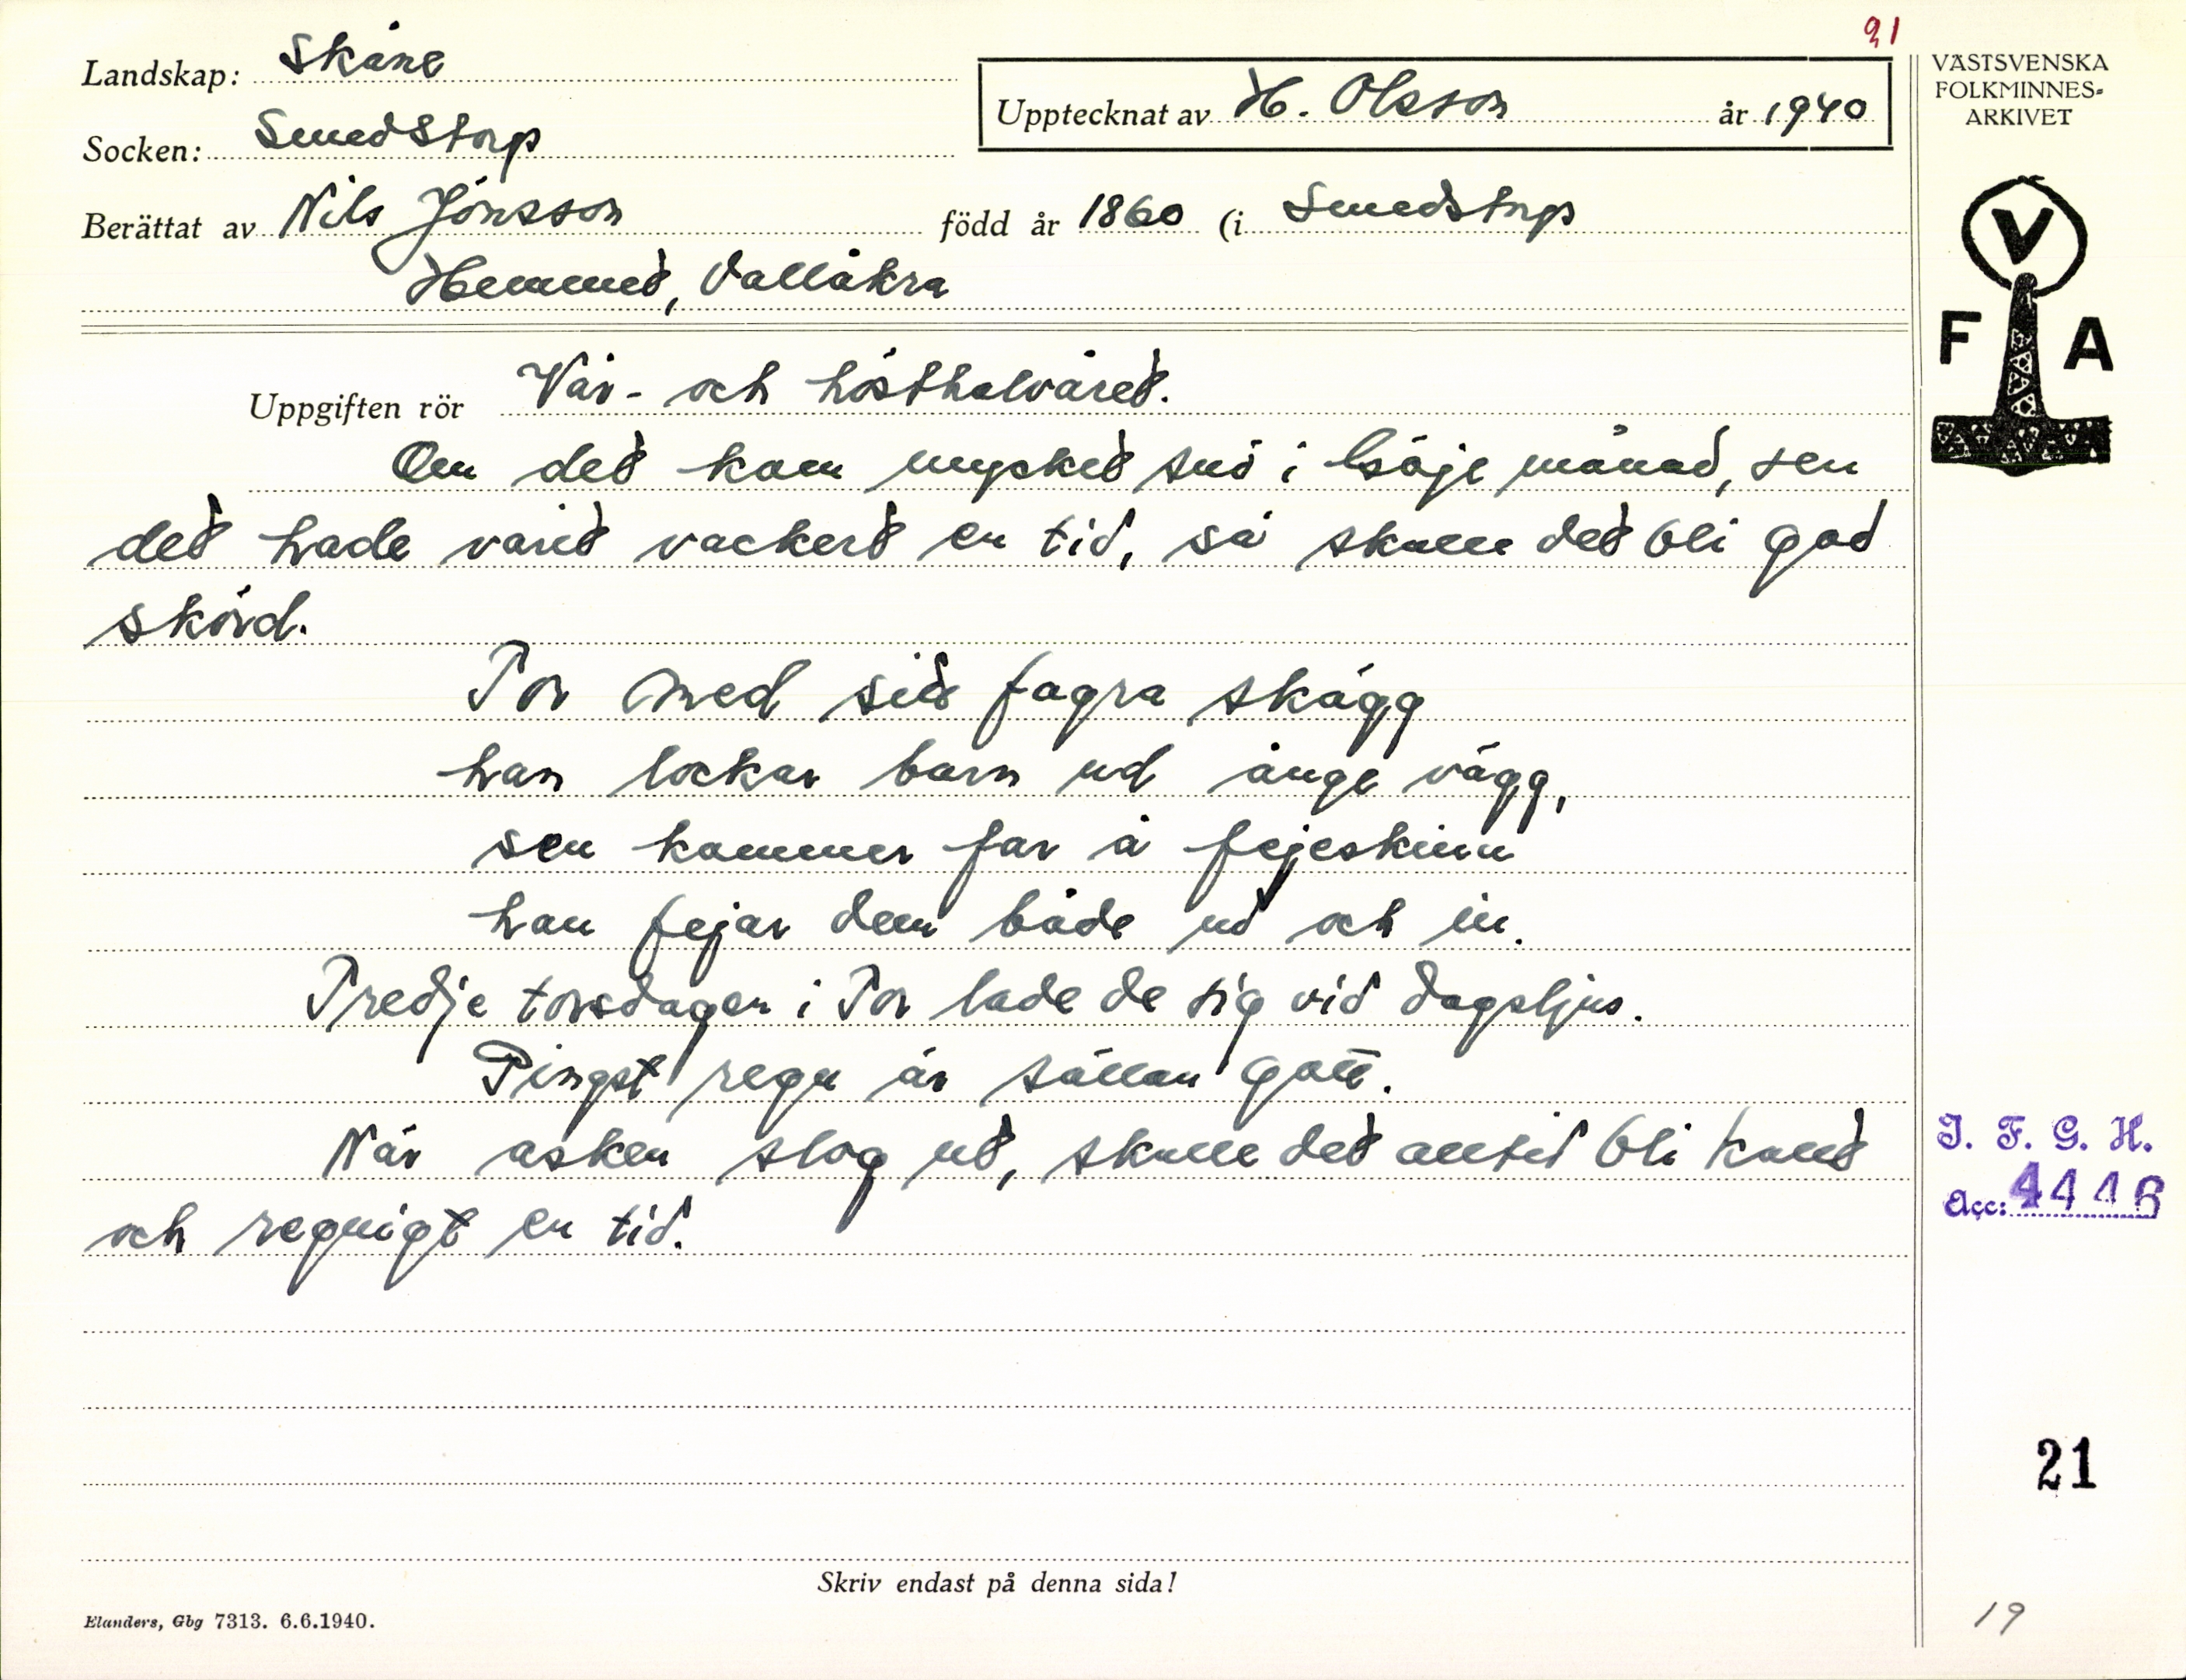 21
Landskap: Skåne
Upptecknat av H. Olsson år 1940
Socken: Smedstorp
Berättat av Nils Jönsson född år 1860 (i Smedstorp
Hemmet, Vallåkra
VÄSTSVENSKA
FOLKMINNES-
ARKIVET
V
F A
Uppgiften rör Vår- och hösthalvåret.
Om det kom mycket snö i Göje månad, sen
det hade varit vackert en tid, så skulle det bli god
skörd.
Tor med sit fagra skägg
han lockar barn ud ånge vägg,
sen kommer far å fejeskinn
han fejar dem både ud och in.
Tredje torsdagen i Tor lade de sig vid dagsljus.
Pingst regn är sällan gott.
När asken slog ut, skulle det alltid bli kallt
och regnigt en tid.
I. F. G. H.
Acc: 4446
21
Skriv endast på denna sida!
Elanders, Gbg 7313. 6.6.1940.
19